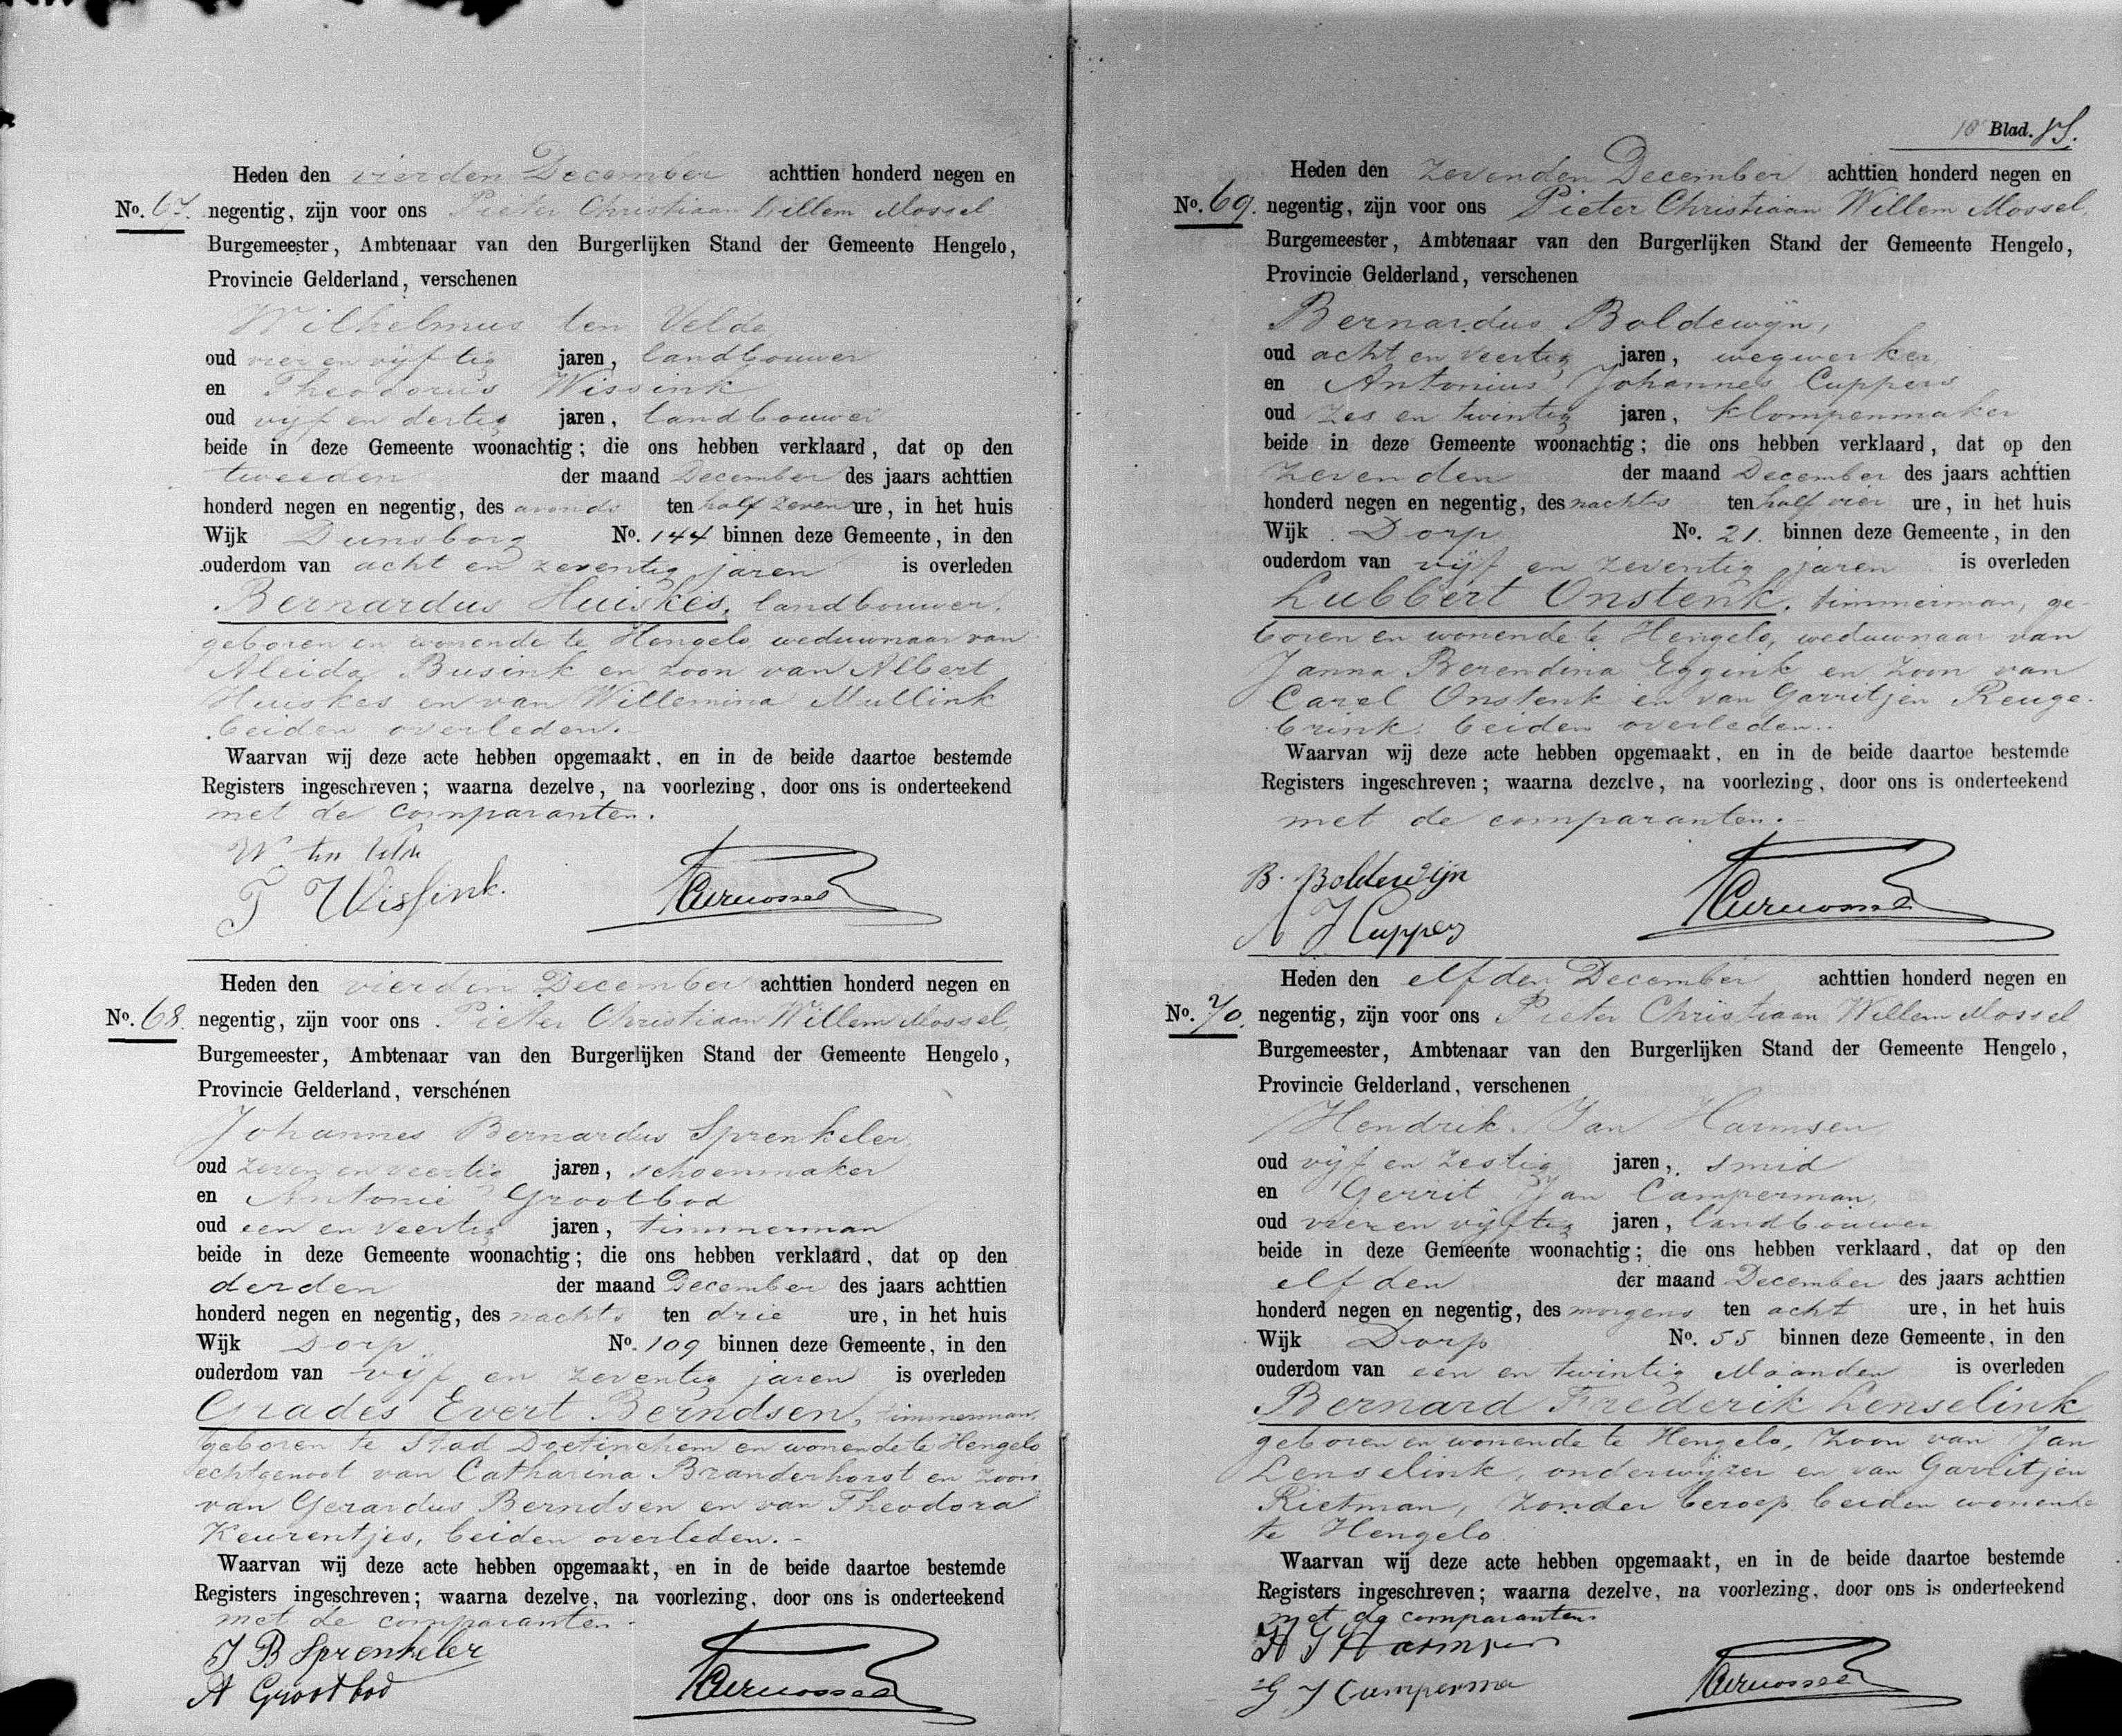 Heden den vierden December achttien honderd negen en
No. 67. negentig, zijn voor ons Pieter Christiaan Willem Mossel
Burgemeester, Ambtenaar van den Burgerlijken Stand der Gemeente Hengelo,
Provincie Gelderland, verschenen
Wilhelmus ten Velde
oud vier en vijftig jaren, landbouwer
en Theodorus Wissink
oud vijf en dertig jaren, landbouwer
beide in deze Gemeente woonachtig; die ons hebben verklaard, dat op den
tweeden der maand December des jaars achttien
honderd negen en negentig, des avonds ten half zeven ure, in het huis
Wijk Dunsborg No. 144 binnen deze Gemeente, in den
ouderdom van acht en zeventig jaren is overleden
Bernardus Huiskes, landbouwer,
geboren en wonende te Hengelo, weduwnaar van
Aleida Busink en zoon van Albert
Huiskes en van Willemina Mullink
beiden overleden.-
Waarvan wij deze acte hebben opgemaakt, en in de beide daartoe bestemde
Registers ingeschreven; waarna dezelve, na voorlezing, door ons is onderteekend
met de comparanten.
W ten Velde
T Wissink.
Heden den vierden December achttien honderd negen en
No. 68. negentig, zijn voor ons Pieter Christiaan Willem Mossel,
Burgemeester, Ambtenaar van den Burgerlijken Stand der Gemeente Hengelo,
Provincie Gelderland, verschenen
Johannes Bernardus Sprenkeler,
oud zeven en veertig jaren, schoenmaker
en Antonie Grootbod
oud een en veertig jaren, timmerman
beide in deze Gemeente woonachtig; die ons hebben verklaard, dat op den
derden der maand December des jaars achttien
honderd negen en negentig, des nachts ten drie ure, in het huis
Wijk Dorp No. 109 binnen deze Gemeente, in den
ouderdom van vijf en zeventig jaren is overleden
Grades Evert Berndsen, timmerman,
geboren te Stad Doetinchem en wonende te Hengelo
echtgenoot van Catharina Branderhorst en zoon
van Gerardus Berndsen en van Theodora
Keurentjes, beiden overleden.-
Waarvan wij deze acte hebben opgemaakt, en in de beide daartoe bestemde
Registers ingeschreven; waarna dezelve, na voorlezing, door ons is onderteekend
met de comparanten.-
J B Sprenkeler
A Grootbod
Blad.
Heden den zevenden December achttien honderd negen en
No. 69. negentig, zijn voor ons Pieter Christiaan Willem Mossel,
Burgemeester, Ambtenaar van den Burgerlijken Stand der Gemeente Hengelo,
Provincie Gelderland, verschenen
Bernardus Boldewijn,
oud acht en veertig jaren, wegwerker
en Antonius Johannes Cuppers
oud zes en twintig jaren, klompenmaker
beide in deze Gemeente woonachtig; die ons hebben verklaard, dat op den
zevenden der maand December des jaars achttien
honderd negen en negentig, des nachts ten half vier ure, in het huis
Wijk Dorp No. 21. binnen deze Gemeente, in den
ouderdom van vijf en zeventig jaren is overleden
Lubbert Onstenk, timmerman, ge-
boren en wonende te Hengelo, weduwnaar van
Janna Berendina Eggink en zoon van
Carel Onstenk en van Garritjen Reuge-
brink, beiden overleden.-
Waarvan wij deze acte hebben opgemaakt, en in de beide daartoe bestemde
Registers ingeschreven; waarna dezelve, na voorlezing, door ons is onderteekend
met de comparanten.-
B. Boldewijn
A J Cuppers
Heden den elfden December achttien honderd negen en
No. 70. negentig, zijn voor ons Pieter Christiaan Willem Mossel
Burgemeester, Ambtenaar van den Burgerlijken Stand der Gemeente Hengelo,
Provincie Gelderland, verschenen
Hendrik Jan Harmsen,
oud vijf en zestig jaren, smid
en Gerrit Jan Camperman,
oud vier en vijftig jaren, landbouwer
beide in deze Gemeente woonachtig; die ons hebben verklaard, dat op den
elfden der maand December des jaars achttien
honderd negen en negentig, des morgens ten acht ure, in het huis
Wijk Dorp No. 55 binnen deze Gemeente, in den
ouderdom van een en twintig Maanden is overleden
Bernard Frederik Lenselink
geboren en wonende te Hengelo, zoon van Jan
Lenselink, onderwijzer en van Garritjen
Rietman, zonder beroep beiden wonende
te Hengelo.
Waarvan wij deze acte hebben opgemaakt, en in de beide daartoe bestemde
Registers ingeschreven; waarna dezelve, na voorlezing, door ons is onderteekend
met de comparanten.
H J Harmsen
G J Camperman